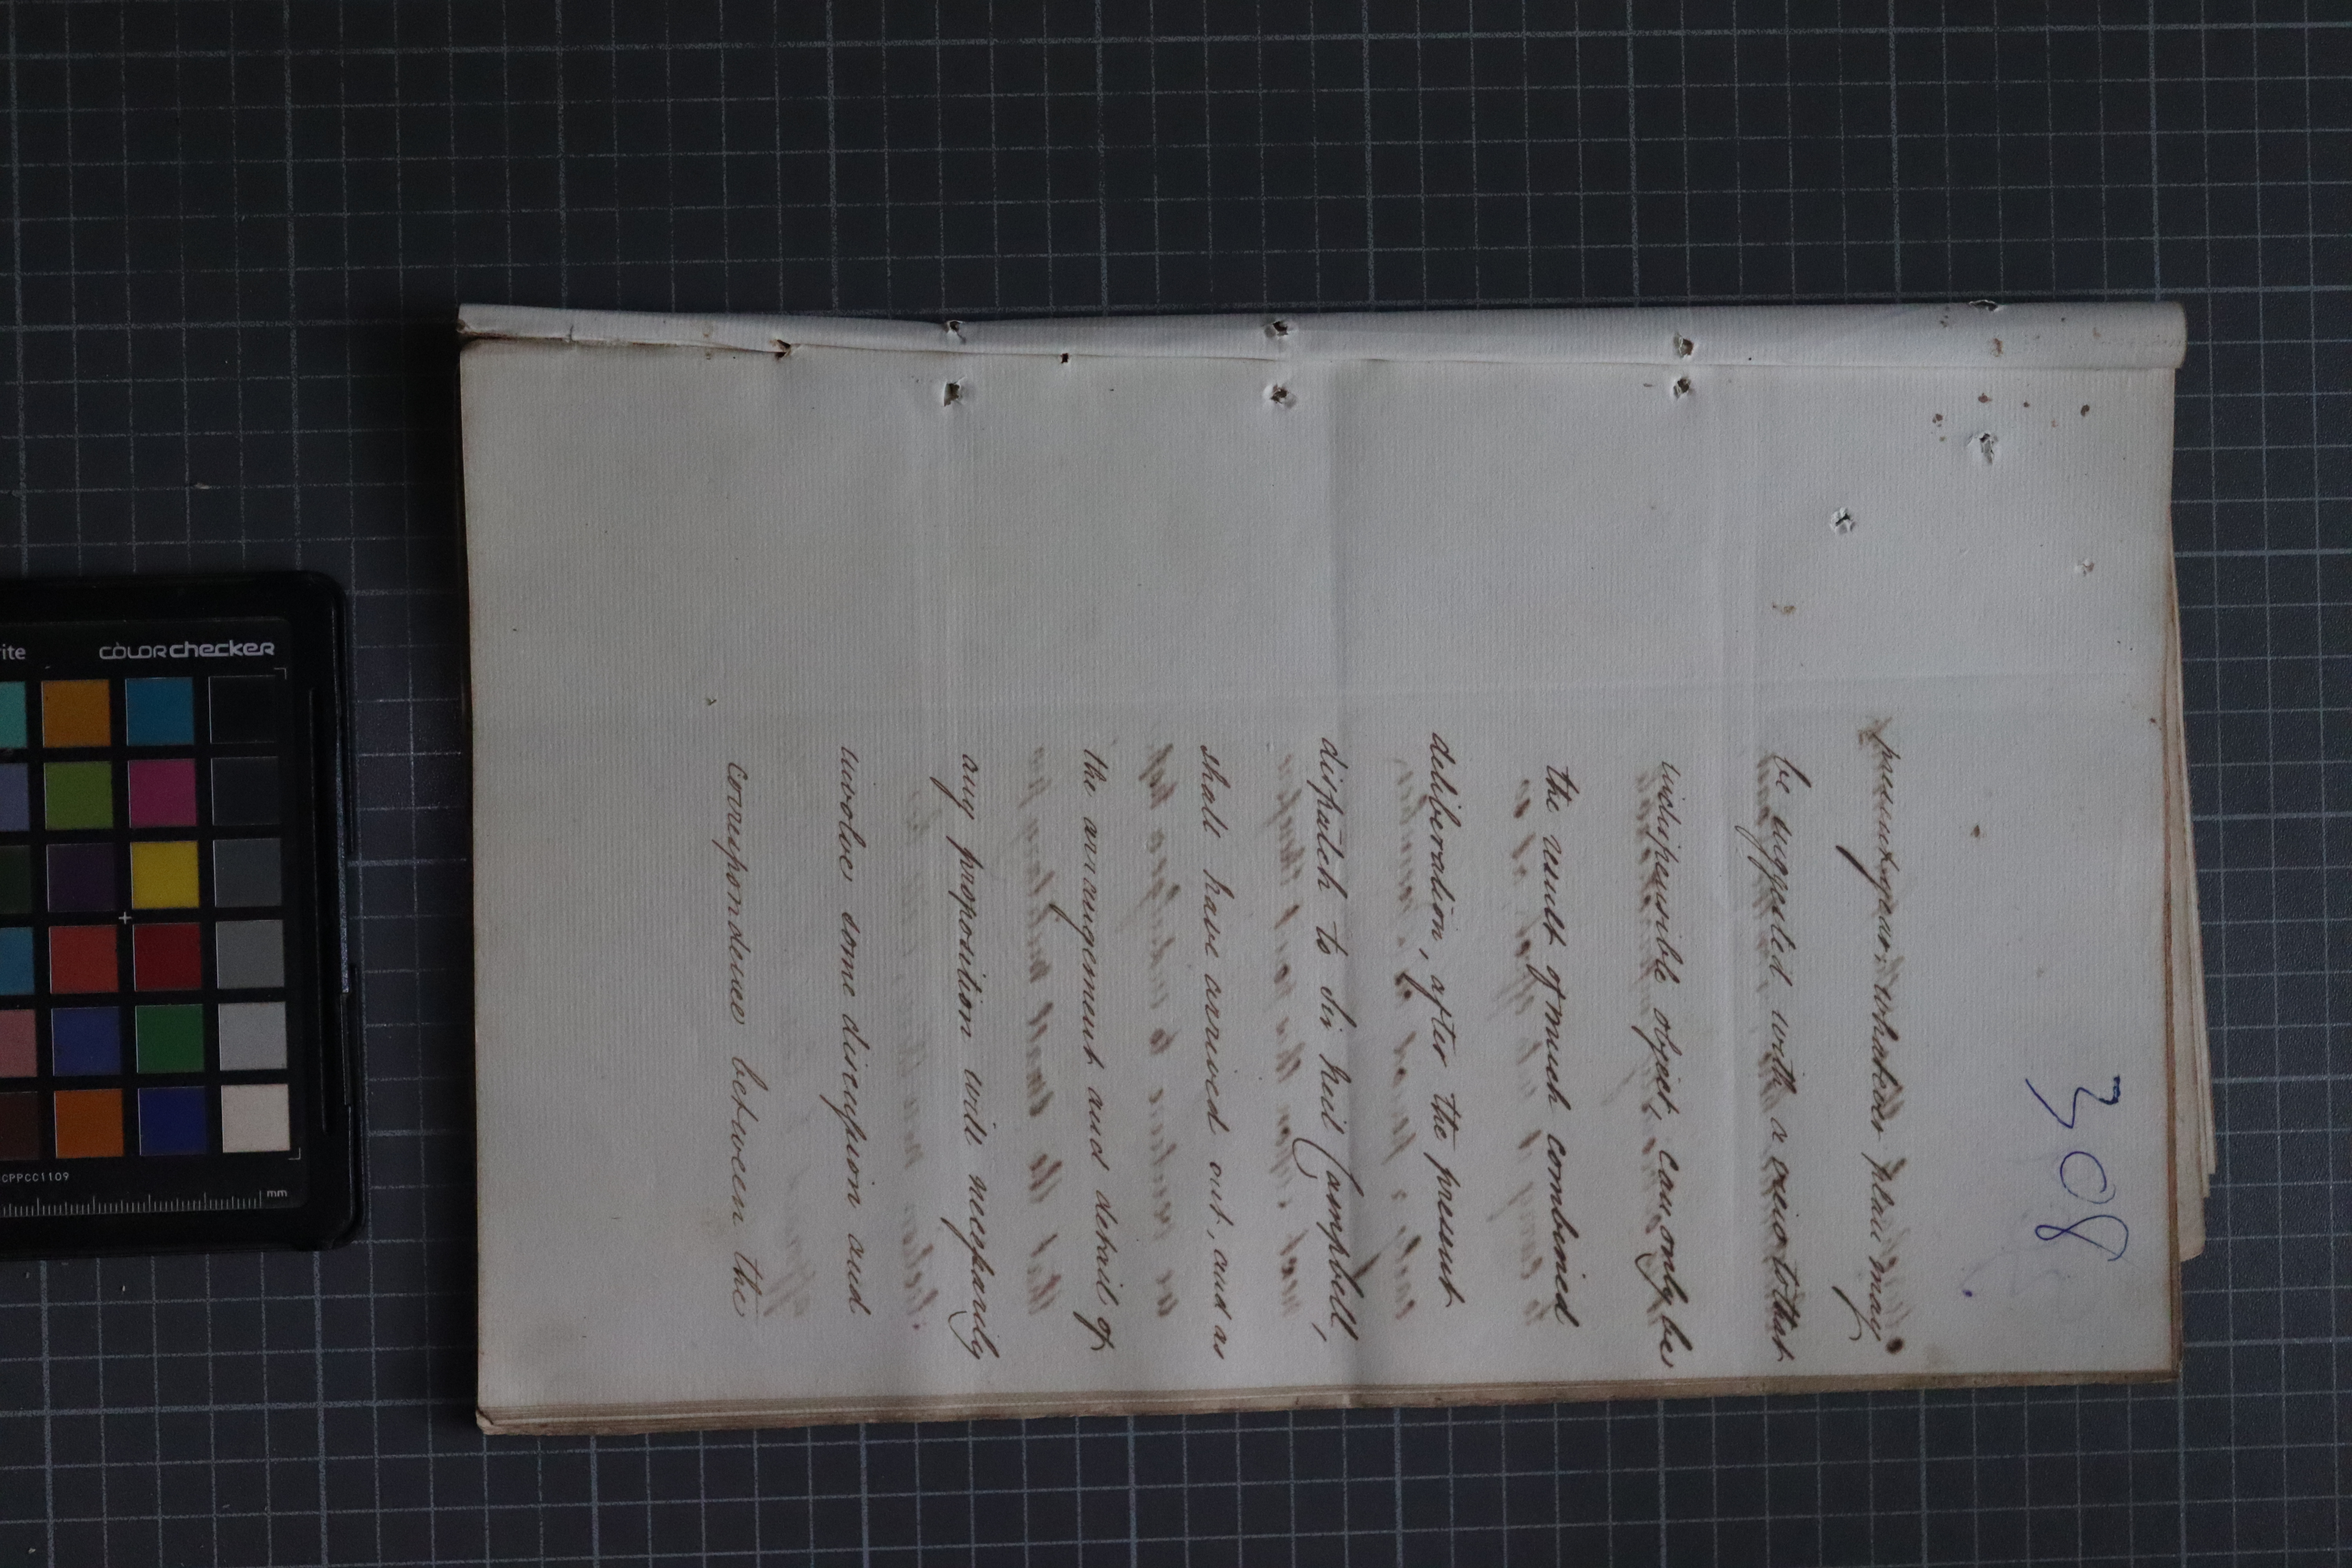 308
present year. Whatever plan may
be suggested with a view to that
indispensible object, can only be
the result of much combined
deliberation, after the present
dispatch to Sir Neil Campbell,
shall have arrived out, and as
the arrangement and detail of
any proposition will necessarily
involve some discussion and
correspondence between the
rite
colorchecker
CPPCC1109
mm